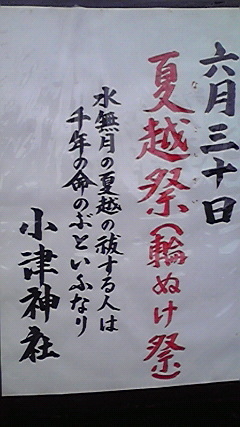 六月三十日
夏越祭(輪ぬけ祭)
水無月の夏越の祓する人は
千年の命のぶといふなり
小津神社